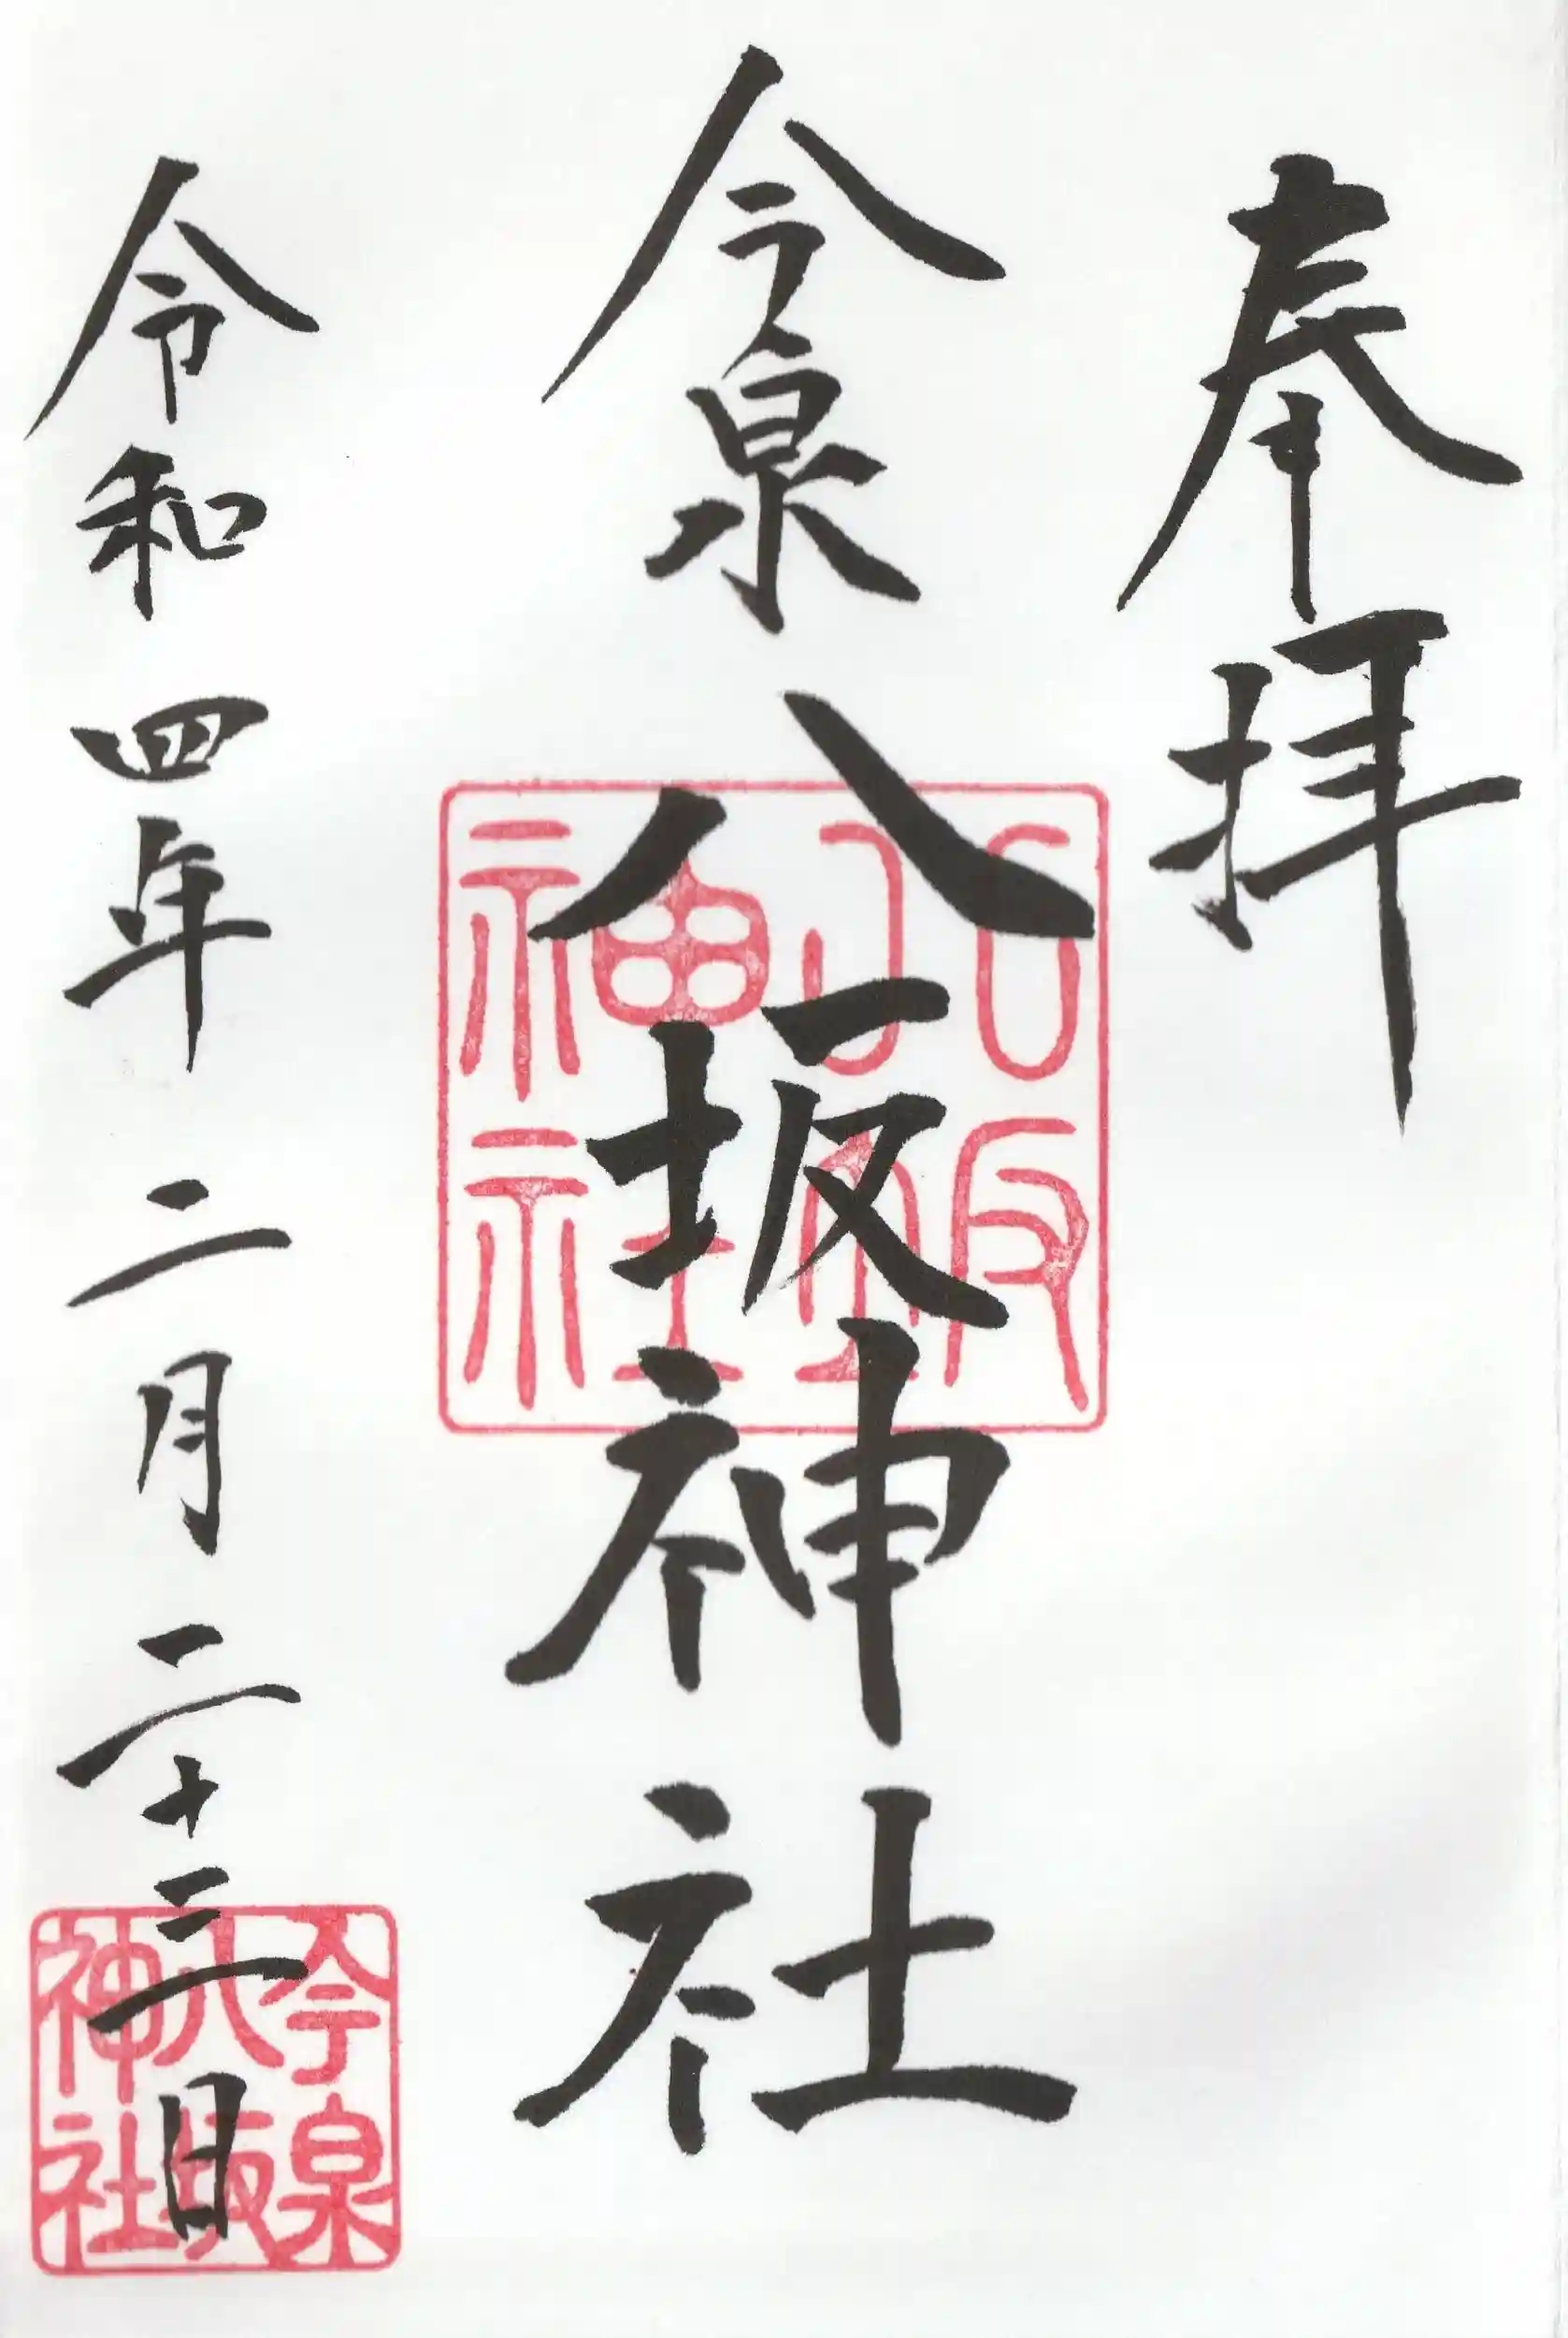 奉拝
今泉八坂神社
令和四年二月二十三日
今泉
八坂
神社